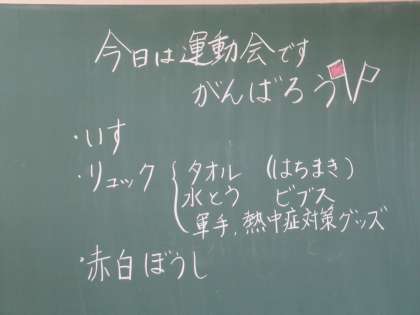 今日は運動会です
がんばろう
・いす
・リュック タオル (はちまき)
水とう ビブス
軍手,熱中症対策グッズ
・赤白ぼうし